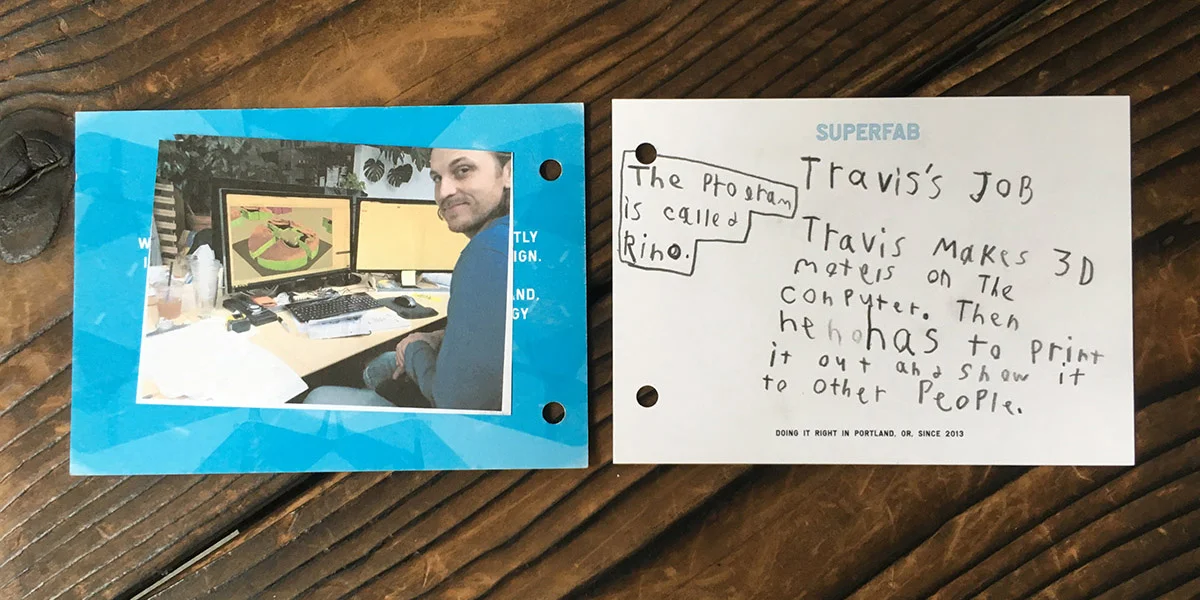 W
I
TLY
IGN.
AND,
GY
SUPERFAB
The Program
is called
Rino.
Travis's JOB
Travis Makes 3D
motels on The
conpyter. Then
he hohas to print
it out and show it
to other People.
DOING IT RIGHT IN PORTLAND, OR, SINCE 2013